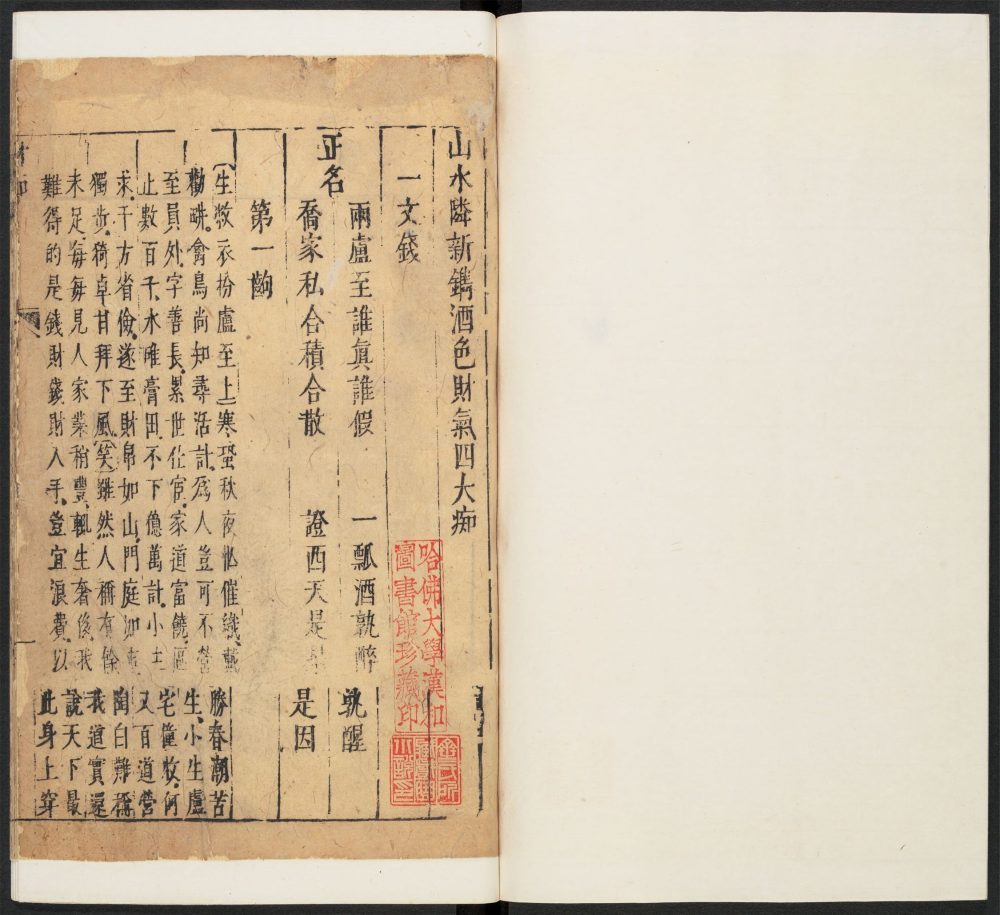 山水隣新鐫酒色財氣四大痴
一文錢
正名
兩盧至誰眞誰假 一瓢酒孰醉孰醒
喬家私合積合散 證西天是 是因
第一齣
(生敝衣扮盧至上)寒蛩秋夜忙催織,戴勝春潮苦
勸畊,禽鳥尚知尋活計,爲人豈可不營生,小生盧
至員外,字善長,累世仕宦,家道富饒,區宅僮牧,何
止數百千,水碓膏田,不下億萬計,小 又百道營
求,千方省儉,遂至財帛如山,門庭如 陶白難稱
獨步,猗卓甘拜下風,(笑)雖然人稱有餘我道實還
未足,每每見人家業稍豐,輒生奢侈,我說天下最
難得的是錢財,錢財入手,豈宜浪費,以此身上穿
哈佛大學漢和
圖書館珍藏印